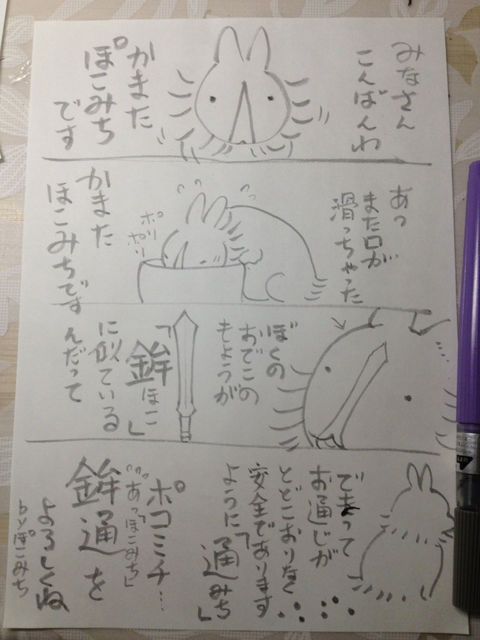 みなさん
こんばんわ
かまた
ぽこみち
です
あっ
また口が
滑っちゃった
ポリ
ポリ
かまた
ほこみちです
ぼくの
おでこの
もようが
「鉾ほこ」
に似ている
んだって
で〜って
お通じが
とどこおりなく
安全であります
ように「通みち」
ポコミチ…
""あっ「ほこみち」
鉾通を
よろしくね
byぽこみち